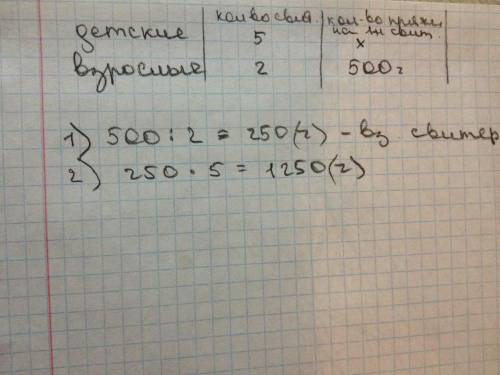 кол-во свит. кол-во пряжи
на 1н свит.
детские 5 х
взрослые 2 500г
1) 500 : 2 = 250(г) - вз. свитер
2) 250 · 5 = 1250(г)